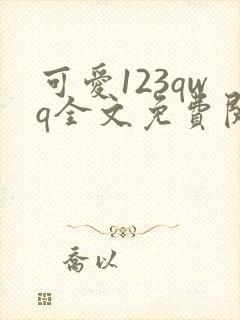 可愛123qw
q全文免費
喬以